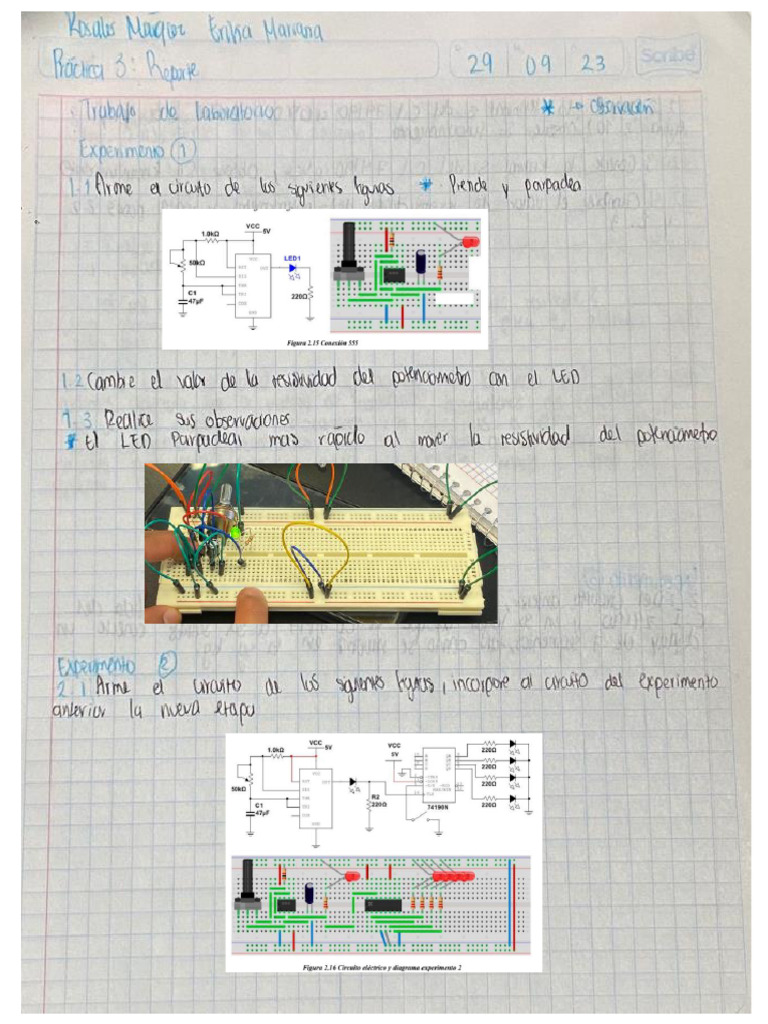 Rosales Maqioz Erika Mariana
Práctica 3: Reporte
29 09 23
Scribe
Trabajo de Laboratorio
* → observación
Experimento 1
1.1 Arme el circuito de los siguientes figuras * Prende y parpadea
1.0kΩ
VCC
5V
50kΩ
LED1
C1
47µF
220Ω
Figura 2.15 Conexión 555
1.2 Cambie el valor de la resistividad del potenciometro con el LED
1.3 Realice sus observaciones
* El LED Parpadear mas rápido al mover la resistividad del potenciometro
Experimento 2
2.1 Arme el circuito de los siguientes figuras, incorpore al circuito del experimento
anterior la nueva etapa
1.0kΩ
VCC
5V
50kΩ
C1
47µF
R2
220Ω
VCC
5V
74190N
220Ω
220Ω
220Ω
220Ω
Figura 2.16 Circuito eléctrico y diagrama experimento 2